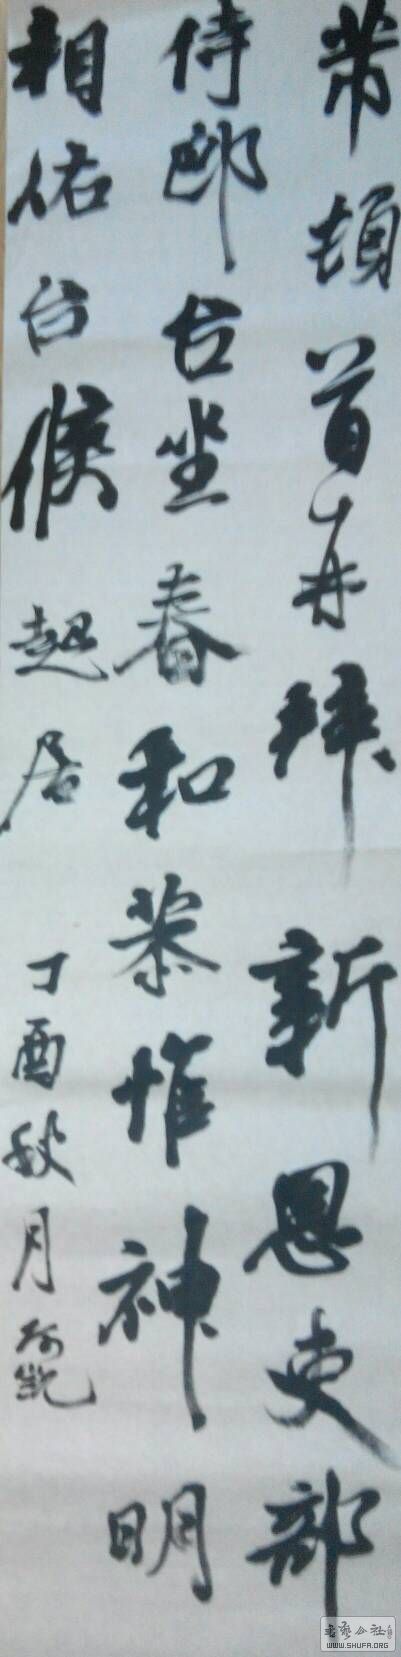 芾頓首再拜新恩吏部
侍郎台坐春和恭惟神明
相佑台候起居
丁酉秋月
书艺公社
WWW.SHUFA.ORG